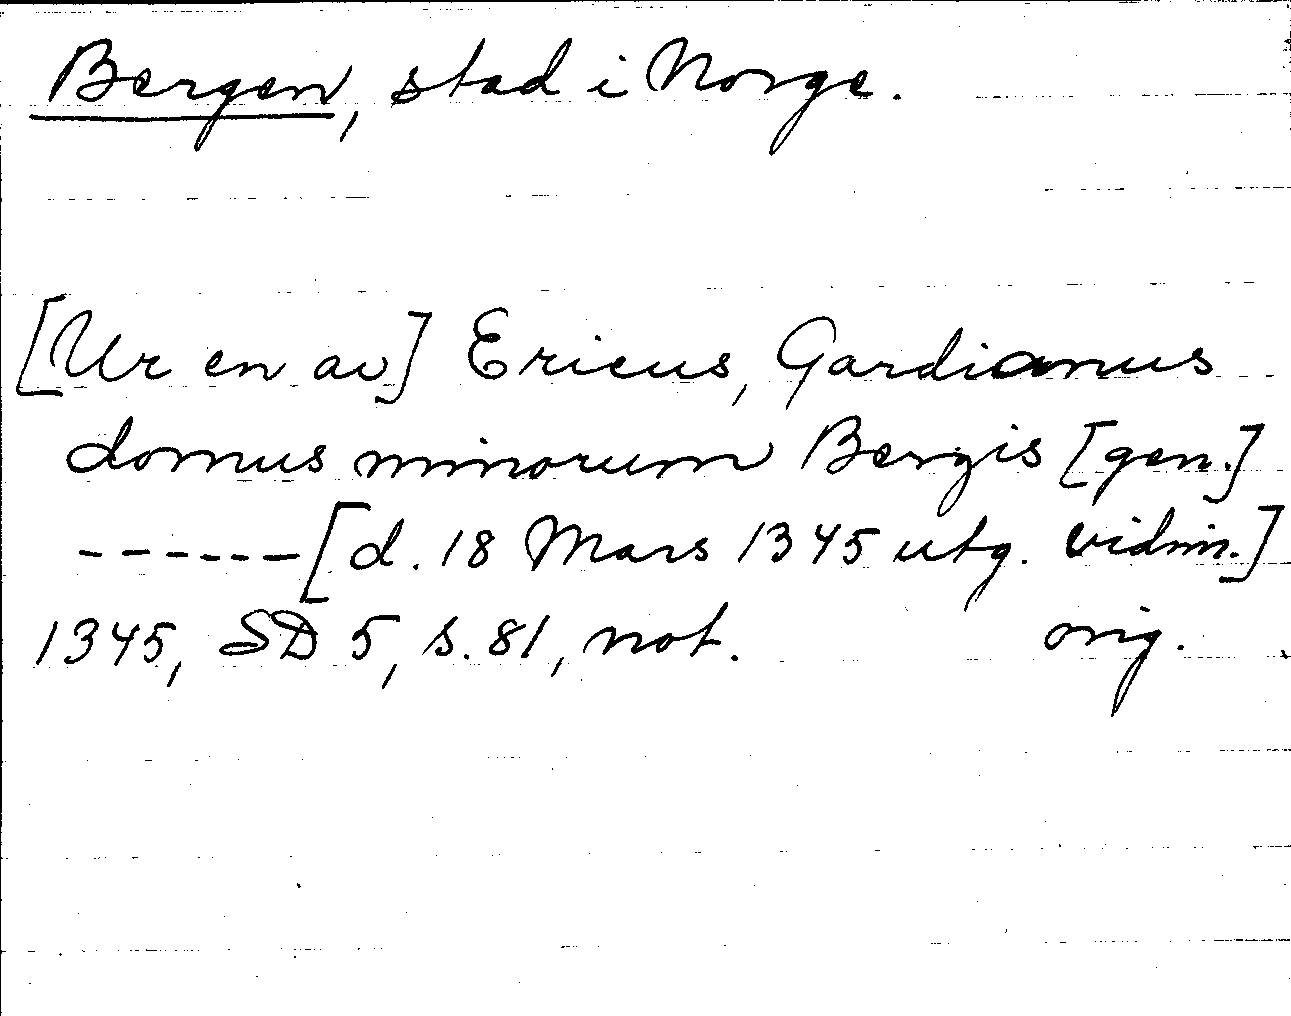 Bergen, stad i Norge.
[Ur en av] Ericus, Gardianus
domus minorum Bergis [gen.]
------[d. 18 Mars 1345 utg. vidim.]
1345, SD 5, s. 81, not. orig.